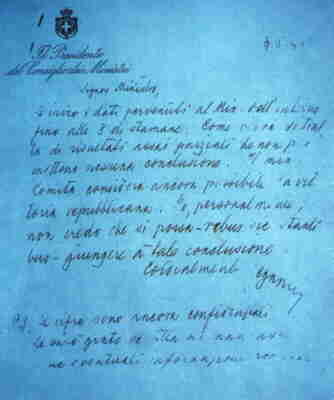 Il Presidente
del Consiglio dei Ministri
Signor Ministro,
Le invio i dati pervenuti al Min. dell'interno
fino alle 8 di stamane. Come
di risultati assai parziali che non
mettono nessuna conclusione. Il
Romita considera ancora possibile la vit
toria repubblicana. Io, personalmente,
non credo che si possa - rebus sic stanti
bus - giungere a tale conclusione
Cordialmente
P.S. Le cifre sono ancora confidenziali
Le sarò grato se Ella mi
eventuali informazioni